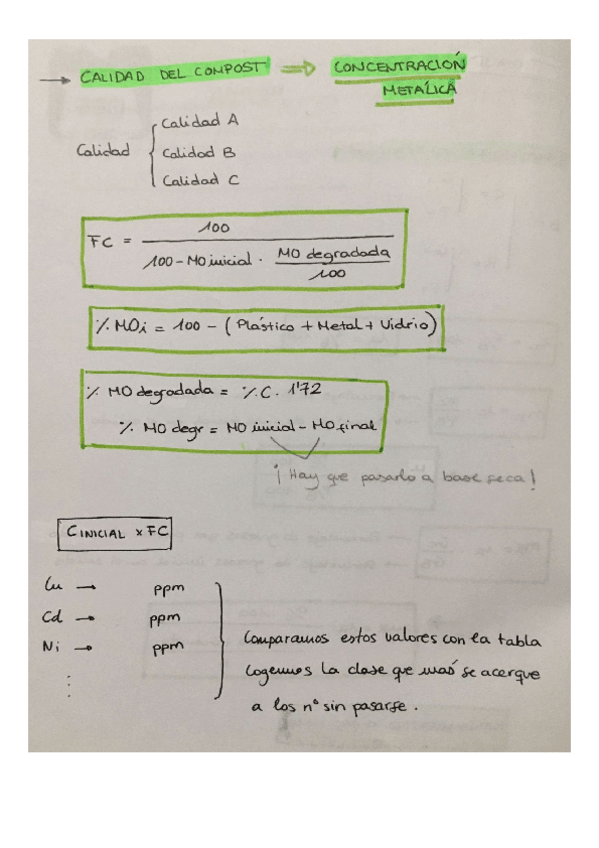 → CALIDAD DEL COMPOST ⇒ CONCENTRACIÓN METÁLICA
Calidad { Calidad A
Calidad B
Calidad C
FC = 100 / (100 - MO inicial · MO degradada / 100)
% MOi = 100 - (Plástico + Metal + Vidrio)
% MO degradada = % C · 1'72
% MO degr = MO inicial - MO final
¡Hay que pasarlo a base seca!
CINICIAL x FC
Cu → ppm
Cd → ppm
Ni → ppm
⋮
Comparamos estos valores con la tabla
Cogemos la clase que más se acerque
a los nº sin pasarse.